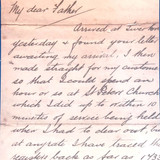 My dear Father
Arrived at Liver
yesterday & found your
awaiting my arrival. I then
made straight for my
so that I could spend an
hour or so at St Peters Church
which I did up to within 10
minutes of service being held
when I had to clear out, but
at any rate I have traced the
back as far as